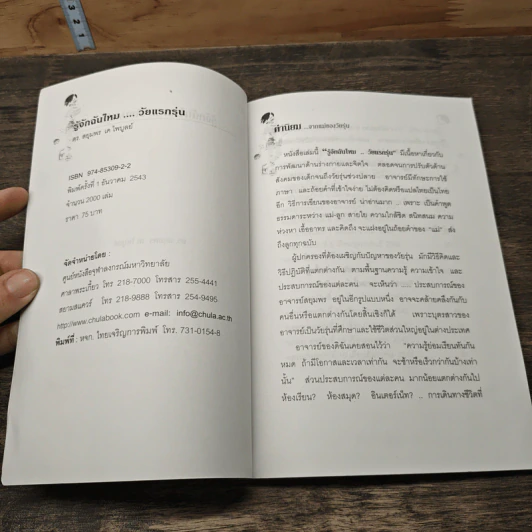 รู้จักฉันไหม .... วัยแรกรุ่น
ดร. สยุมพร เค ไพบูลย์
ISBN 974-85309-2-2
พิมพ์ครั้งที่ 1 ธันวาคม 2543
จำนวน 2000 เล่ม
ราคา 75 บาท
จัดจำหน่ายโดย :
ศูนย์หนังสือจุฬาลงกรณ์มหาวิทยาลัย
ศาลาพระเกี้ยว โทร 218-7000 โทรสาร 255-4441
สยามสแควร์ โทร 218-9888 โทรสาร 254-9495
http://www.chulabook.com e-mail: info@chula.ac.th
พิมพ์ที่ : หจก. ไทยเจริญการพิมพ์ โทร. 731-0154-8
คำนิยม ...จากแม่ของวัยรุ่น
หนังสือเล่มนี้ "รู้จักฉันไหม .. วัยแรกรุ่น" มีเนื้อหาเกี่ยวกับ
การพัฒนาด้านร่างกายและจิตใจ ตลอดจนการปรับตัวด้าน
สังคมของเด็กจนถึงวัยรุ่นช่วงปลาย อาจารย์มีลักษณะการใช้
ภาษา และถ้อยคำที่เข้าใจง่าย ไม่ต้องคิดหรือแปลไทยเป็นไทย
อีก วิธีการเขียนของอาจารย์ น่าอ่านมาก .. เพราะ เป็นคำพูด
ธรรมดาระหว่าง แม่-ลูก สายใย ความใกล้ชิด สนิทสนม ความ
ห่วงหา เอื้ออาทร และคิดถึง จะแฝงอยู่ในถ้อยคำของ "แม่" ส่ง
ถึงลูกทุกฉบับ
ผู้ปกครองที่ต้องเผชิญกับปัญหาของวัยรุ่น มักมีวิธีคิดและ
วิธีปฏิบัติที่แตกต่างกัน ตามพื้นฐานความรู้ ความเข้าใจ และ
ประสบการณ์ของแต่ละคน จะเห็นว่า ..... ประสบการณ์ของ
อาจารย์สยุมพร อยู่ในอีกรูปแบบหนึ่ง อาจจะคล้ายคลึงกันกับ
คนอื่นหรือแตกต่างกันโดยสิ้นเชิงก็ได้ เพราะบุตรสาวของ
อาจารย์เป็นวัยรุ่นที่ศึกษาและใช้ชีวิตส่วนใหญ่อยู่ในต่างประเทศ
อาจารย์ของดิฉันเคยสอนไว้ว่า "ความรู้ย่อมเรียนทันกัน
หมด ถ้ามีโอกาสและเวลาเท่ากัน จะช้าหรือเร็วกว่ากันบ้างเท่า
นั้น" ส่วนประสบการณ์ของแต่ละคน มากน้อยแตกต่างกันไป
ห้องเรียน? ห้องสมุด? อินเตอร์เน็ท? .. การเดินทางชีวิตที่
3
2
1